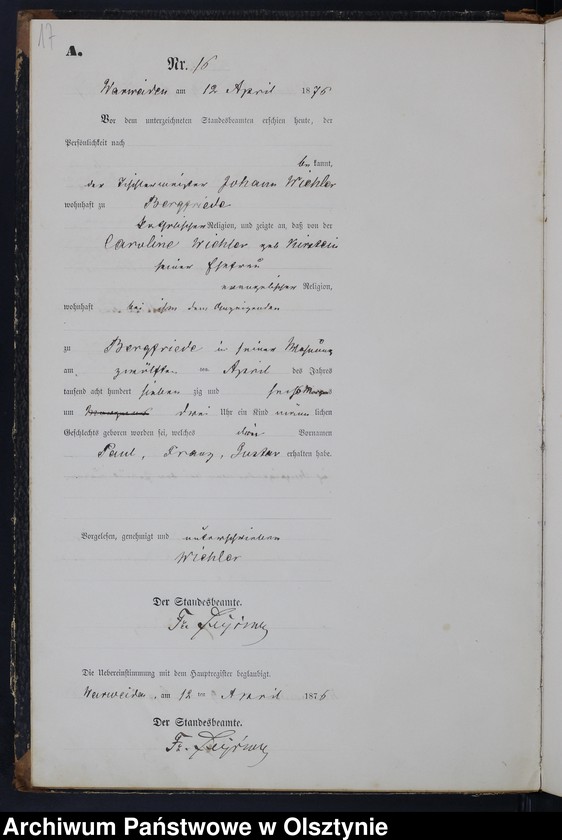 17
A.
Nr. 16
Warweiden am 12 April 1876
Vor dem unterzeichneten Standesbeamten erschien heute, der
Persönlichkeit nach
bekannt,
der Tischlermeister Johann Wichler
wohnhaft zu Bergfriede
katholischer Religion, und zeigte an, daß von der
Caroline Wichler geb
seiner Ehefrau
evangelischer Religion,
wohnhaft bei ihm dem Anzeigenden
zu Bergfriede in seiner Wohnung
am zwölften ten April des Jahres
tausend acht hundert sieben zig und sechs
um zwei Uhr ein Kind männlichen
Geschlechts geboren worden sei, welches die Vornamen
Paul, Franz, Gustav erhalten habe.
Vorgelesen, genehmigt und unterschrieben
Wichler
Der Standesbeamte.
Fr.
Die Uebereinstimmung mit dem Hauptregister beglaubigt.
Warweiden, am 12 ten April 1876
Der Standesbeamte.
Fr.
Archiwum Państwowe w Olsztynie